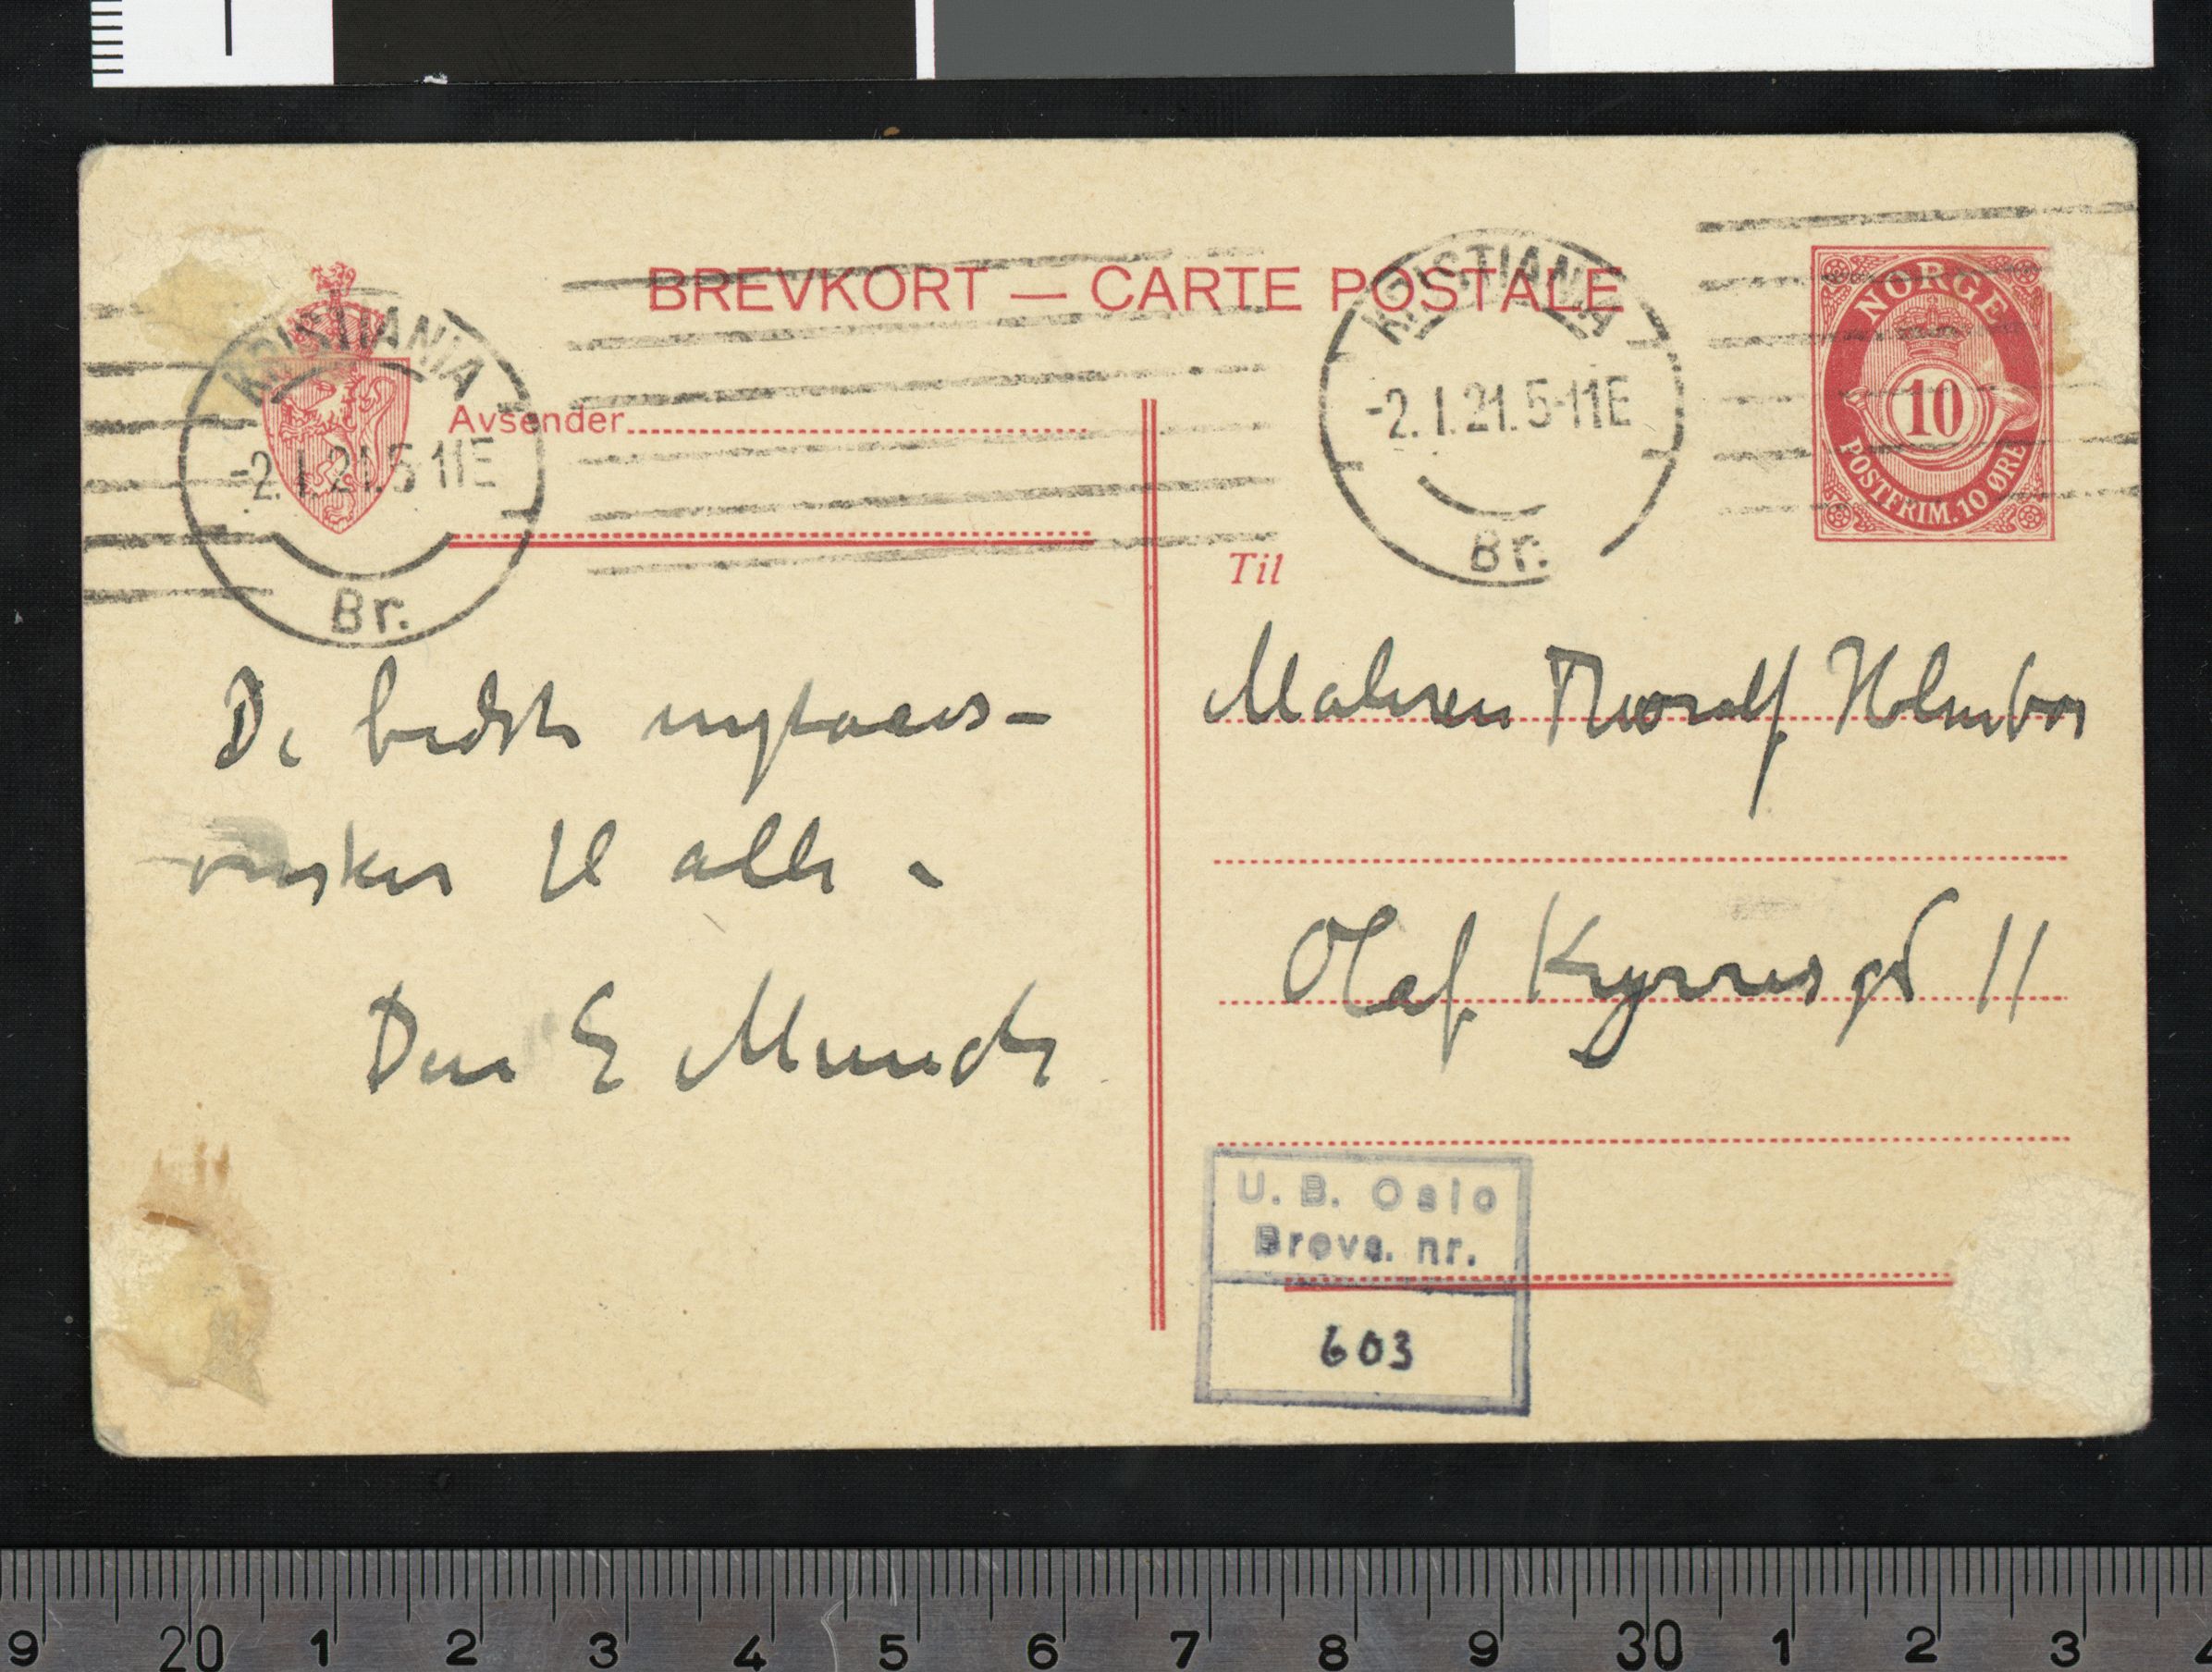 BREVKORT — CARTE POSTALE
KRISTIANIA
-2.I.21.5-11E
Br.
KRISTIANIA
-2.I.21.5-11E
Br.
NORGE
10
POSTFRIM. 10 ØRE
Avsender
De bedste nytaars-
ønsker til alle.
Din E Munch
Til
Maleren Thorolf Holmboe
Olaf Kyrresgd 11
U. B. Oslo
Brevs. nr.
603
9 20 1 2 3 4 5 6 7 8 9 30 1 2 3